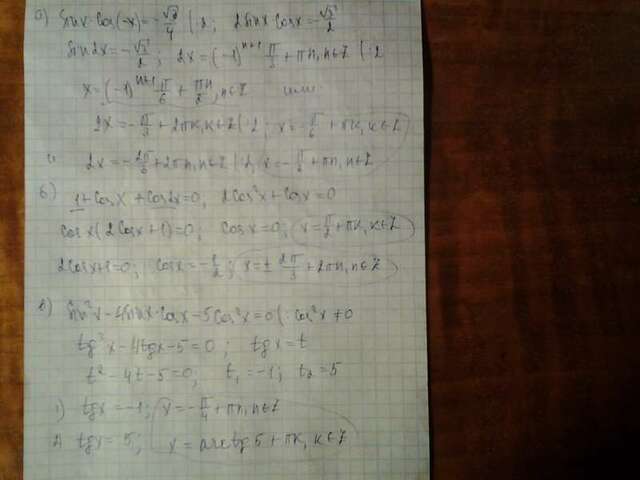 а) sinx·cos(-x)=-√3/4 |·2; 2sinx cosx=-√3/2
sin2x=-√3/2; 2x=(-1)^(n+1) π/3+πn, n∈Z |:2
x=(-1)^(n+1) π/6+πn/2, n∈Z или
2x=-π/3+2πk, k∈Z |:2; x=-π/6+πk, k∈Z
и 2x=-2π/3+2πn, n∈Z |:2, x=-π/3+πn, n∈Z
б) 1+cosx+cos2x=0, 2cos²x+cosx=0
cosx(2cosx+1)=0; cosx=0; x=π/2+πk, k∈Z
2cosx+1=0; cosx=-1/2; x=±2π/3+2πn, n∈Z
в) sin²x-4sinx·cosx-5cos²x=0 |:cos²x≠0
tg²x-4tgx-5=0; tgx=t
t²-4t-5=0; t₁=-1; t₂=5
1) tgx=-1; x=-π/4+πn, n∈Z
2) tgx=5; x=arctg5+πk, k∈Z